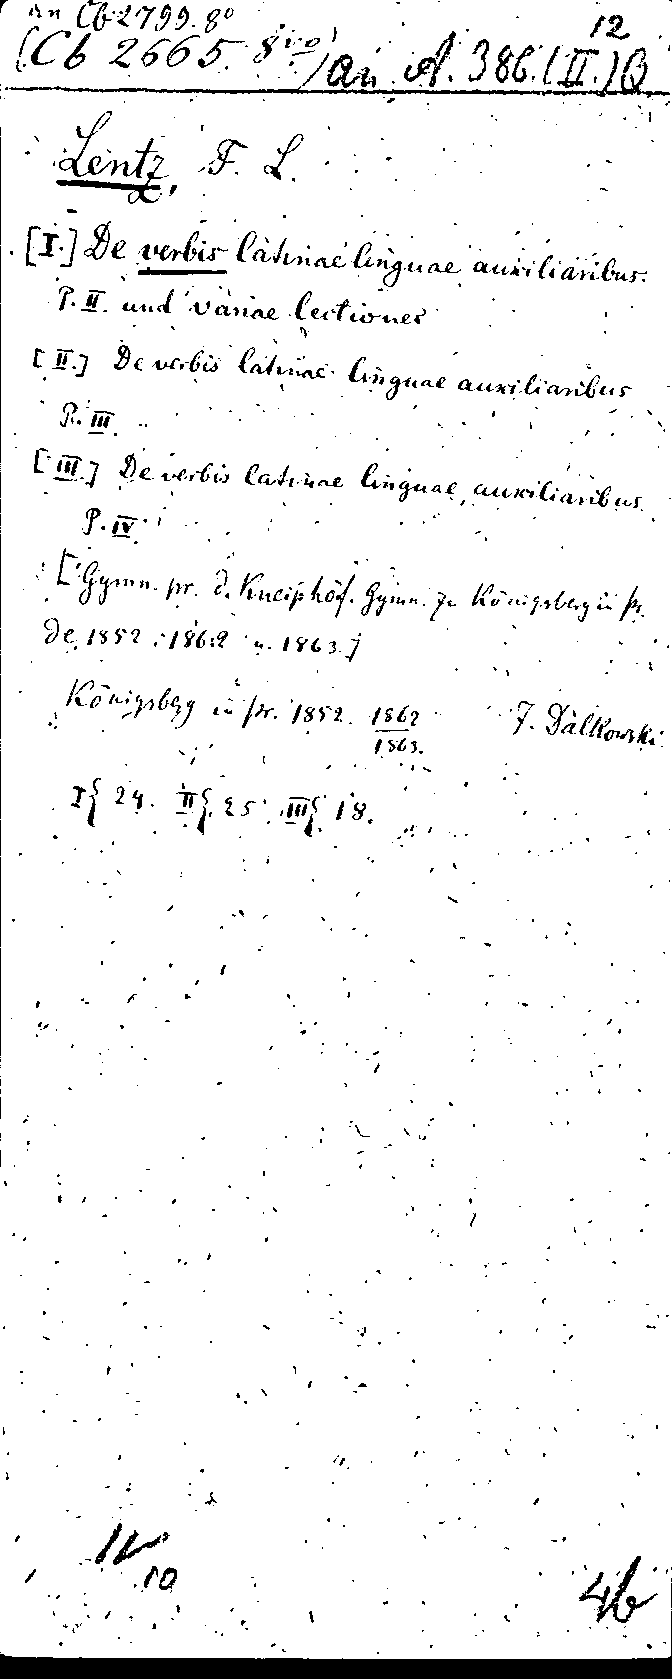 an Cb 2799. 8°
12
(Cb 2665. 8vo) an A. 386. (II.) Q
Lentz, F. L.
[I.] De verbis latinae linguae auxiliaribus.
P. II. und variae lectiones
[II.] De verbis latinae linguae auxiliaribus
P. III
[III.] De verbis latinae linguae auxiliaribus
P. IV.
[Gymn. pr. d. Kneiphöf. Gymn. zu Königsberg in Pr.
de 1852. 1862 u. 1863.]
Königsberg in Pr. 1852. 1862 J. Dalkowski
1863.
I{ 24. II{ 25. III{ 18.
10
4b